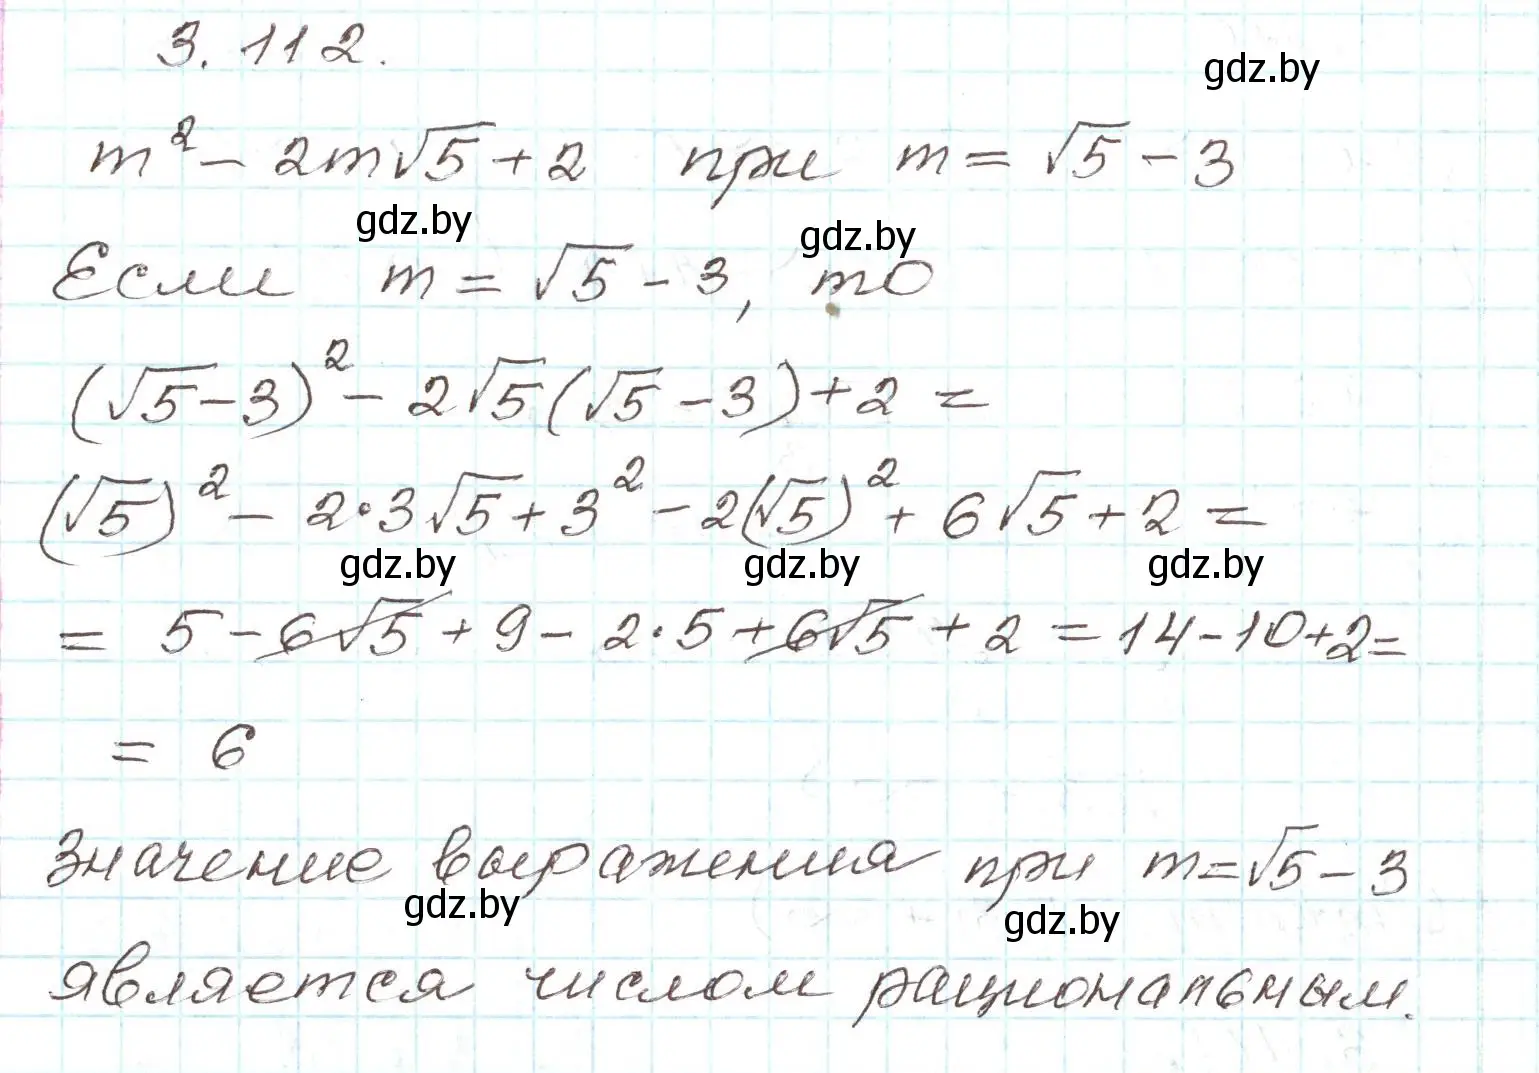 3.112.
gdz.by
m² - 2m√5 + 2 при m = √5 - 3
gdz.by
gdz.by
Если m = √5 - 3, то
(√5 - 3)² - 2√5(√5 - 3) + 2 =
(√5)² - 2·3√5 + 3² - 2(√5)² + 6√5 + 2 =
gdz.by gdz.by gdz.by
= 5 - 6√5 + 9 - 2·5 + 6√5 + 2 = 14 - 10 + 2 =
= 6
Значение выражения при m = √5 - 3
gdz.by gdz.by
является числом рациональным.